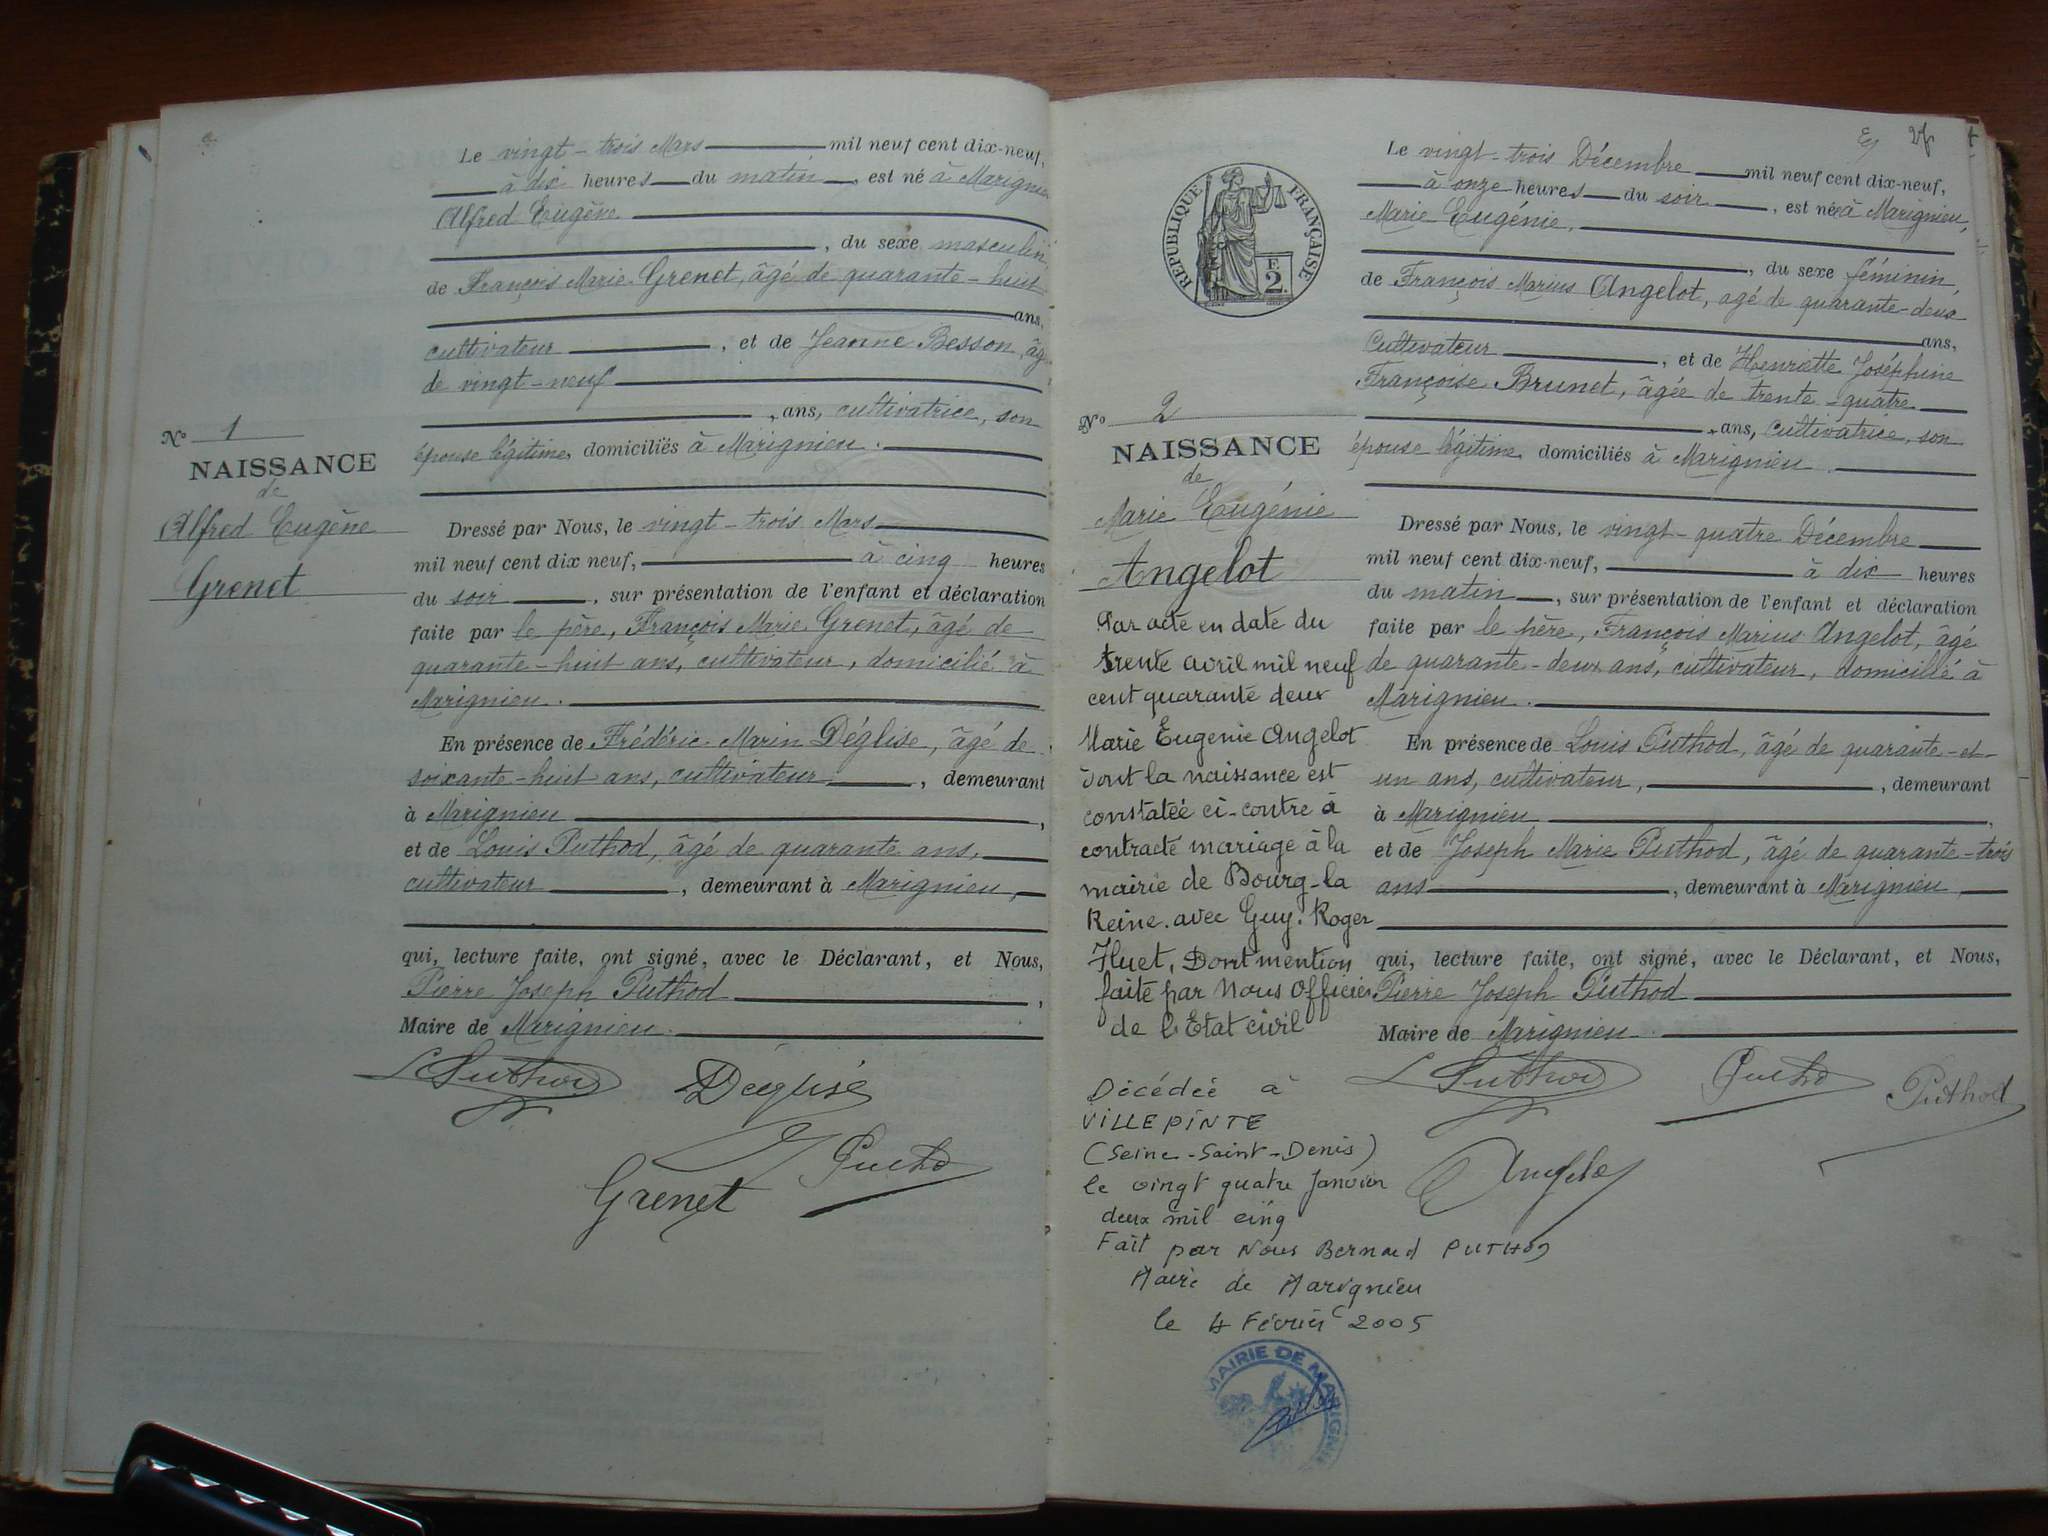 Le vingt-trois Mars mil neuf cent dix-neuf,
à dix heures du matin, est né à Marignieu
Alfred Eugène
, du sexe masculin
de François Marie Grenet, âgé de quarante-huit
ans,
cultivateur, et de Jeanne Besson, âg
de vingt-neuf
ans, cultivatrice, son
épouse légitime, domiciliés à Marignieu.
No 1
NAISSANCE
de
Alfred Eugène
Grenet
Dressé par Nous, le vingt-trois Mars
mil neuf cent dix neuf, à cinq heures
du soir, sur présentation de l'enfant et déclaration
faite par le père, François Marie Grenet, âgé de
quarante-huit ans, cultivateur, domicilié à
Marignieu.
En présence de Frédéric Marin Déglise, âgé de
soixante-huit ans, cultivateur, demeurant
à Marignieu,
et de Louis Puthod, âgé de quarante ans,
cultivateur, demeurant à Marignieu,
qui, lecture faite, ont signé, avec le Déclarant, et Nous,
Pierre Joseph Puthod,
Maire de Marignieu.
L Puthod Déglise
Grenet
27
REPUBLIQUE FRANÇAISE
E
2.
Le vingt-trois Décembre mil neuf cent dix-neuf,
à onze heures du soir, est née à Marignieu,
Marie Eugénie,
, du sexe féminin,
de François Marius Angelot, agé de quarante-deux
ans,
Cultivateur, et de Henriette Joséphine
Françoise Brunet, âgée de trente-quatre
ans, cultivatrice, son
épouse légitime, domiciliés à Marignieu.
No 2
NAISSANCE
de
Marie Eugénie
Angelot
Dressé par Nous, le vingt-quatre Décembre
mil neuf cent dix-neuf, à dix heures
du matin, sur présentation de l'enfant et déclaration
faite par le père, François Marius Angelot, âgé
de quarante-deux ans, cultivateur, domicilié à
Marignieu.
En présence de Louis Puthod, âgé de quarante-et-
un ans, cultivateur, demeurant
à Marignieu,
et de Joseph Marie Puthod, âgé de quarante-trois
ans, demeurant à Marignieu,
qui, lecture faite, ont signé, avec le Déclarant, et Nous,
Pierre Joseph Puthod
Maire de Marignieu.
L Puthod Puthod
Angelot
Par acte en date du
trente avril mil neuf
cent quarante deux
Marie Eugenie Angelot
dont la naissance est
constatée ci-contre à
contracté mariage à la
mairie de Bourg-la
Reine. avec Guy. Roger
Huet, Dont mention
faite par Nous Officier
de l'Etat civil
Décédée à
VILLEPINTE
(Seine-Saint-Denis)
le vingt quatre Janvier
deux mil cinq
Fait par Nous Bernard PUTHOD
Maire de Marignieu
le 4 Février 2005
MAIRIE DE MARIGNIEU